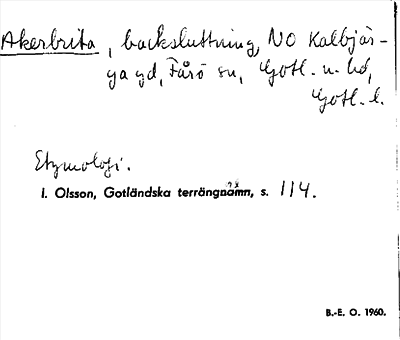 Akerbrita, backsluttning, NO Kalbjär-
ga gd, Fårö sn, Gotl. n. hd,
Gotl. l.
Etymologi.
I. Olsson, Gotländska terrängnamn, s. 114.
B.-E. O. 1960.